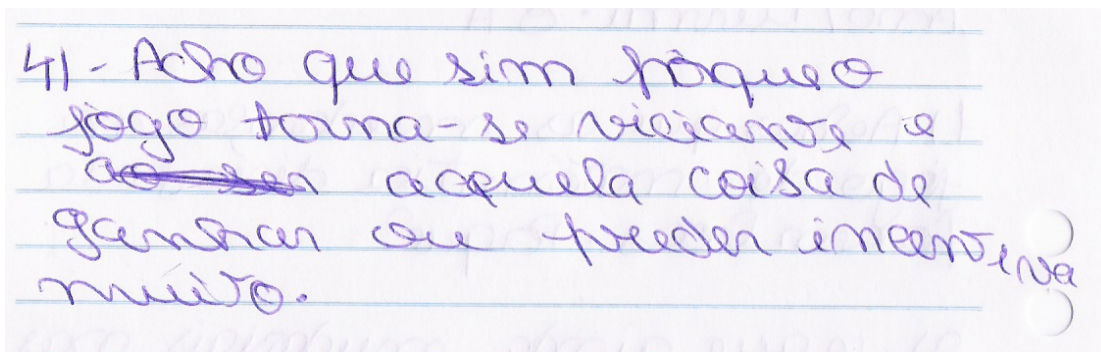 4) - Acho que sim pôrque o
jogo torna-se viciante e
acquela coisa de
ganhar ou preder incentiva
muito.